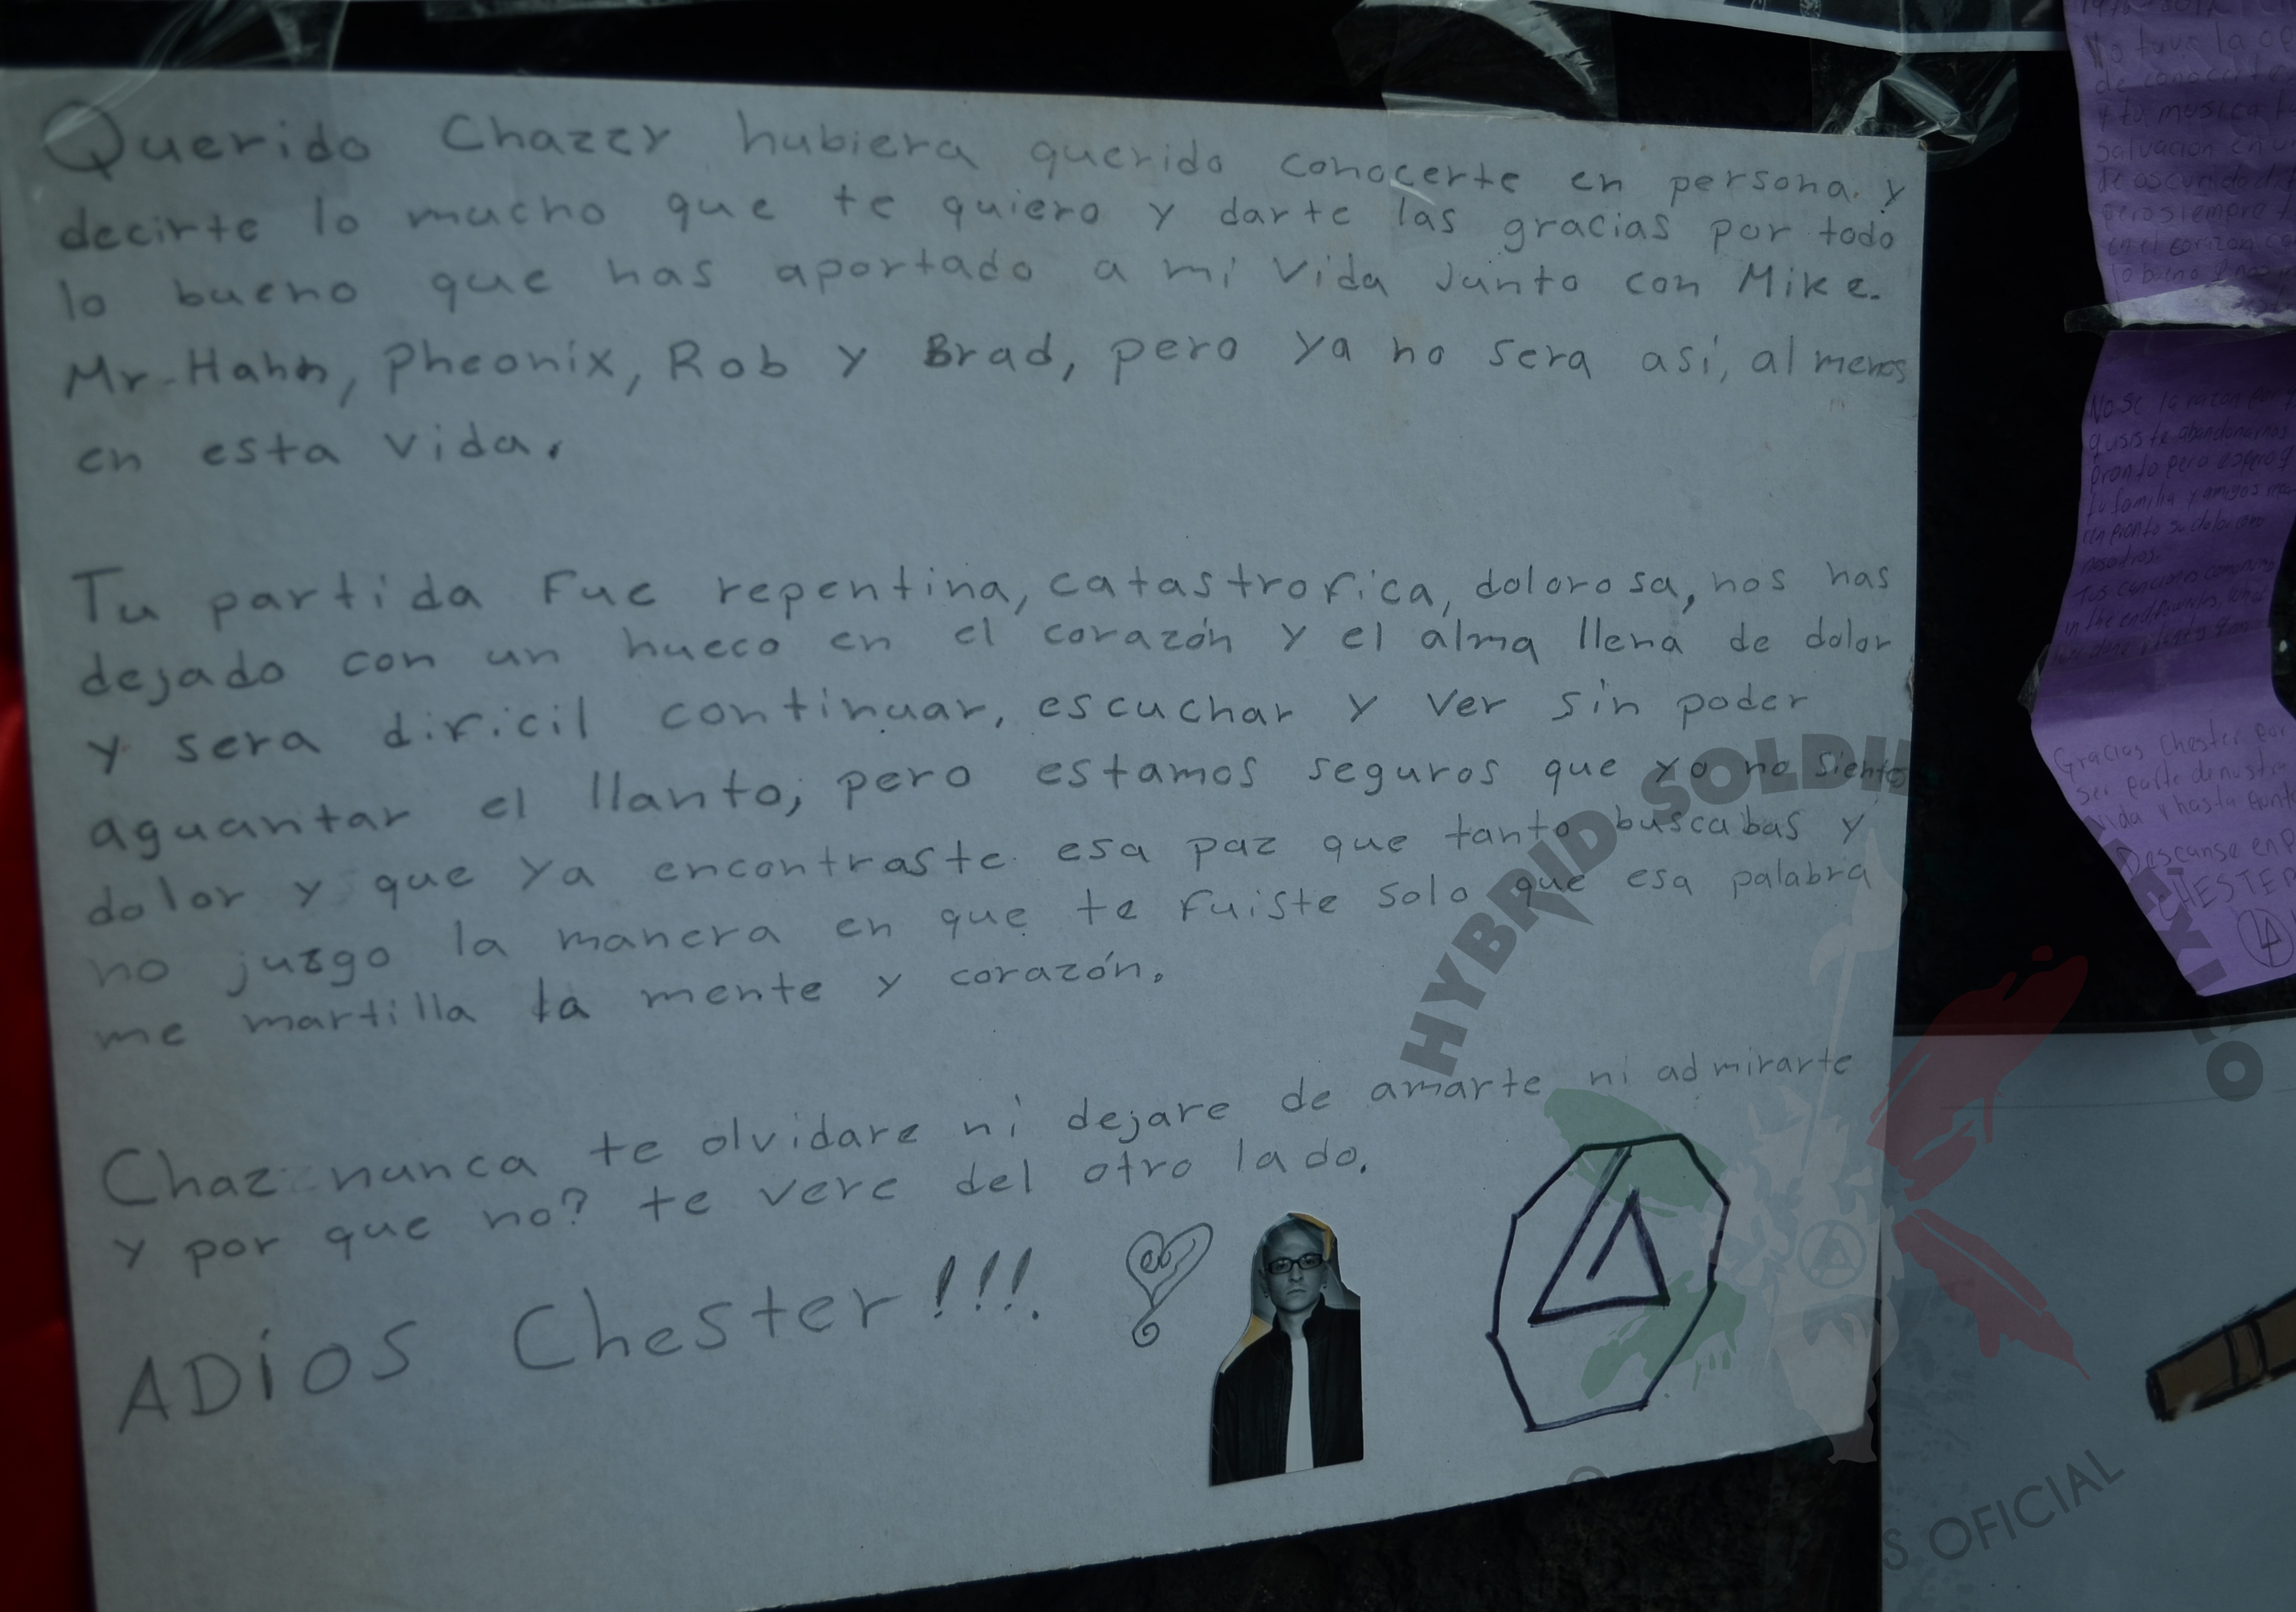 Querido Chazzy hubiera querido conocerte en persona. y
decirte lo mucho que te quiero y darte las gracias por todo
lo bueno que has aportado a mi vida Junto con Mike.
Mr. Hahn, Pheonix, Rob y Brad, pero ya no sera así, al menos
en esta vida.
Tu partida Fue repentina, catastrofica, dolorosa, nos has
dejado con un hueco en el corazón y el alma llena de dolor
y sera dificil continuar, escuchar y ver sin poder
aguantar el llanto; pero estamos seguros que ya no sientes
dolor y que ya encontraste esa paz que tanto buscabas y
no juzgo la manera en que te fuiste solo que esa palabra
me martilla la mente y corazón.
Chaz nunca te olvidare ni dejare de amarte ni admirarte
y por que no? te vere del otro lado.
ADiOS Chester!!!.
No tuve la
de conocerte
y tu musica
salvacion en
pero siempre
en el corazon
lo bueno
No se la razon
quisiste abandonarnos
pronto pero espero
tu familia y amigos
pronto su dolor
nosotros.
Tus canciones
in the end
Gracias Chester por
ser parte de nustra
vida y hasta
Descanse en
CHESTER
HYBRID SOLDI
S OFICIAL